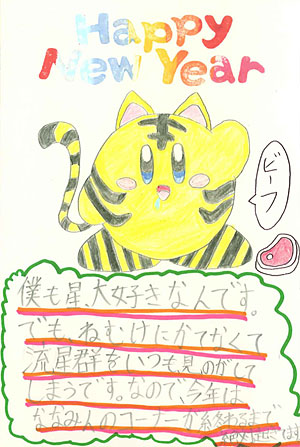 Happy
New Year
ビーフ
僕も星、大好きなんです。
でも、ねむけにかてなくて
流星群をいつも見のがして
しまうです。なので、今年は
ななみんのコーナーが終わるまで